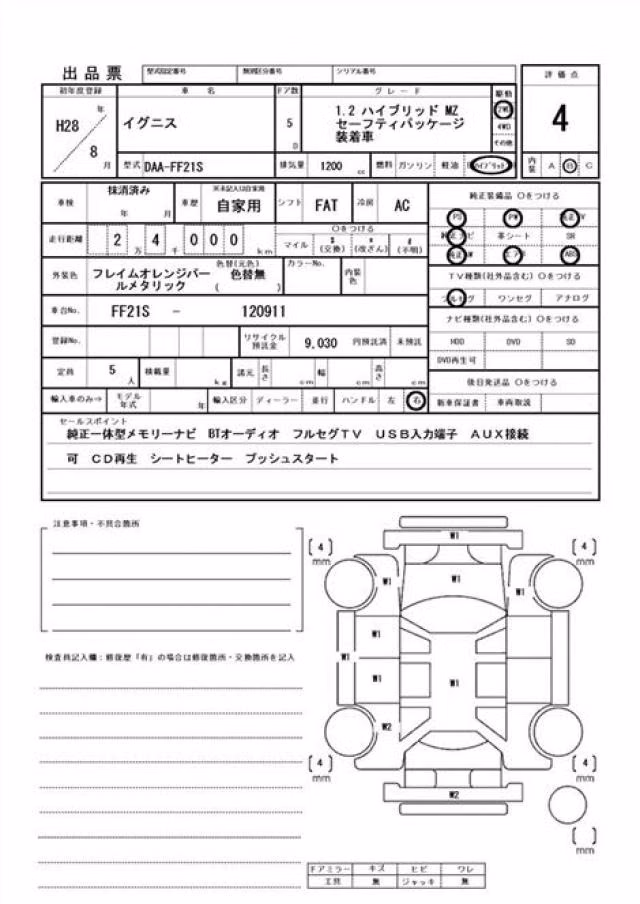 出品票 型式指定番号 類別区分番号 シリアル番号
評価点
初年度登録 車名 ドア数 グレード 駆動
H28 年 イグニス 5 D 1.2 ハイブリッド MZ 2WD
セーフティパッケージ 4WD
8 月 装着車 その他
4
型式 DAA-FF21S 排気量 1200 cc 燃料 ガソリン 軽油 ハイブリッド 内装 A B C
車検 抹消済み 年 月 車歴 ※未記入は自家用 自家用 シフト FAT 冷房 AC
純正装備品 ○をつける
PS PW 純正TV
純正ナビ 革シート SR
純正AW エアB ABS
走行距離 2万4千000km ○をつける
マイル $(交換) *(改ざん) #(不明)
TV種類(社外品含む) ○をつける
フルセグ ワンセグ アナログ
外装色 フレイムオレンジパールメタリック 色替(元色) 色替無 ( ) カラーNo. 内装色
車台No. FF21S - 120911
ナビ種類(社外品含む) ○をつける
HDD DVD SD
DVD再生可
登録No. リサイクル預託金 9,030 円預託済 未預託
定員 5 人 積載量 kg 諸元 長さ cm 幅 cm 高さ cm
後日発送品 ○をつける
新車保証書 車両取説
輸入車のみ⇒ モデル年式 年 輸入区分 ディーラー 並行 ハンドル 左 右
セールスポイント
純正一体型メモリーナビ BTオーディオ フルセグTV USB入力端子 AUX接続
可 CD再生 シートヒーター プッシュスタート
注意事項・不具合箇所
検査員記入欄:修復歴「有」の場合は修復箇所・交換箇所を記入
W1
[4] mm
[4] mm
W1
W1
W1
W1
W1
W1
W1
W2
[4] mm
[4] mm
W2
[ ] mm
ドアミラー キズ ヒビ ワレ
工具 無 ジャッキ 無